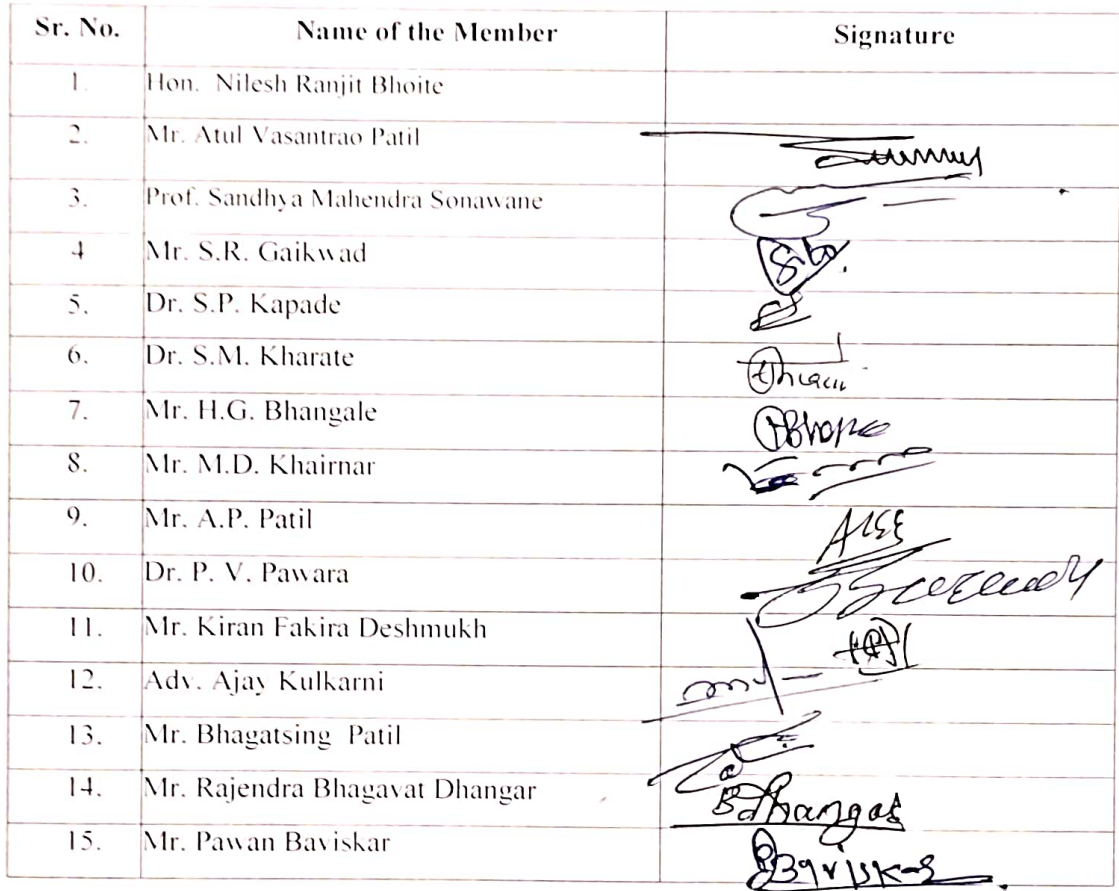 Sr. No. Name of the Member Signature
1. Hon. Nilesh Ranjit Bhoite
2. Mr. Atul Vasantrao Patil
3. Prof. Sandhya Mahendra Sonawane
4 Mr. S.R. Gaikwad
5. Dr. S.P. Kapade
6. Dr. S.M. Kharate
7. Mr. H.G. Bhangale
8. Mr. M.D. Khairnar
9. Mr. A.P. Patil
10. Dr. P. V. Pawara
11. Mr. Kiran Fakira Deshmukh
12. Adv. Ajay Kulkarni
13. Mr. Bhagatsing Patil
14. Mr. Rajendra Bhagavat Dhangar
15. Mr. Pawan Baviskar